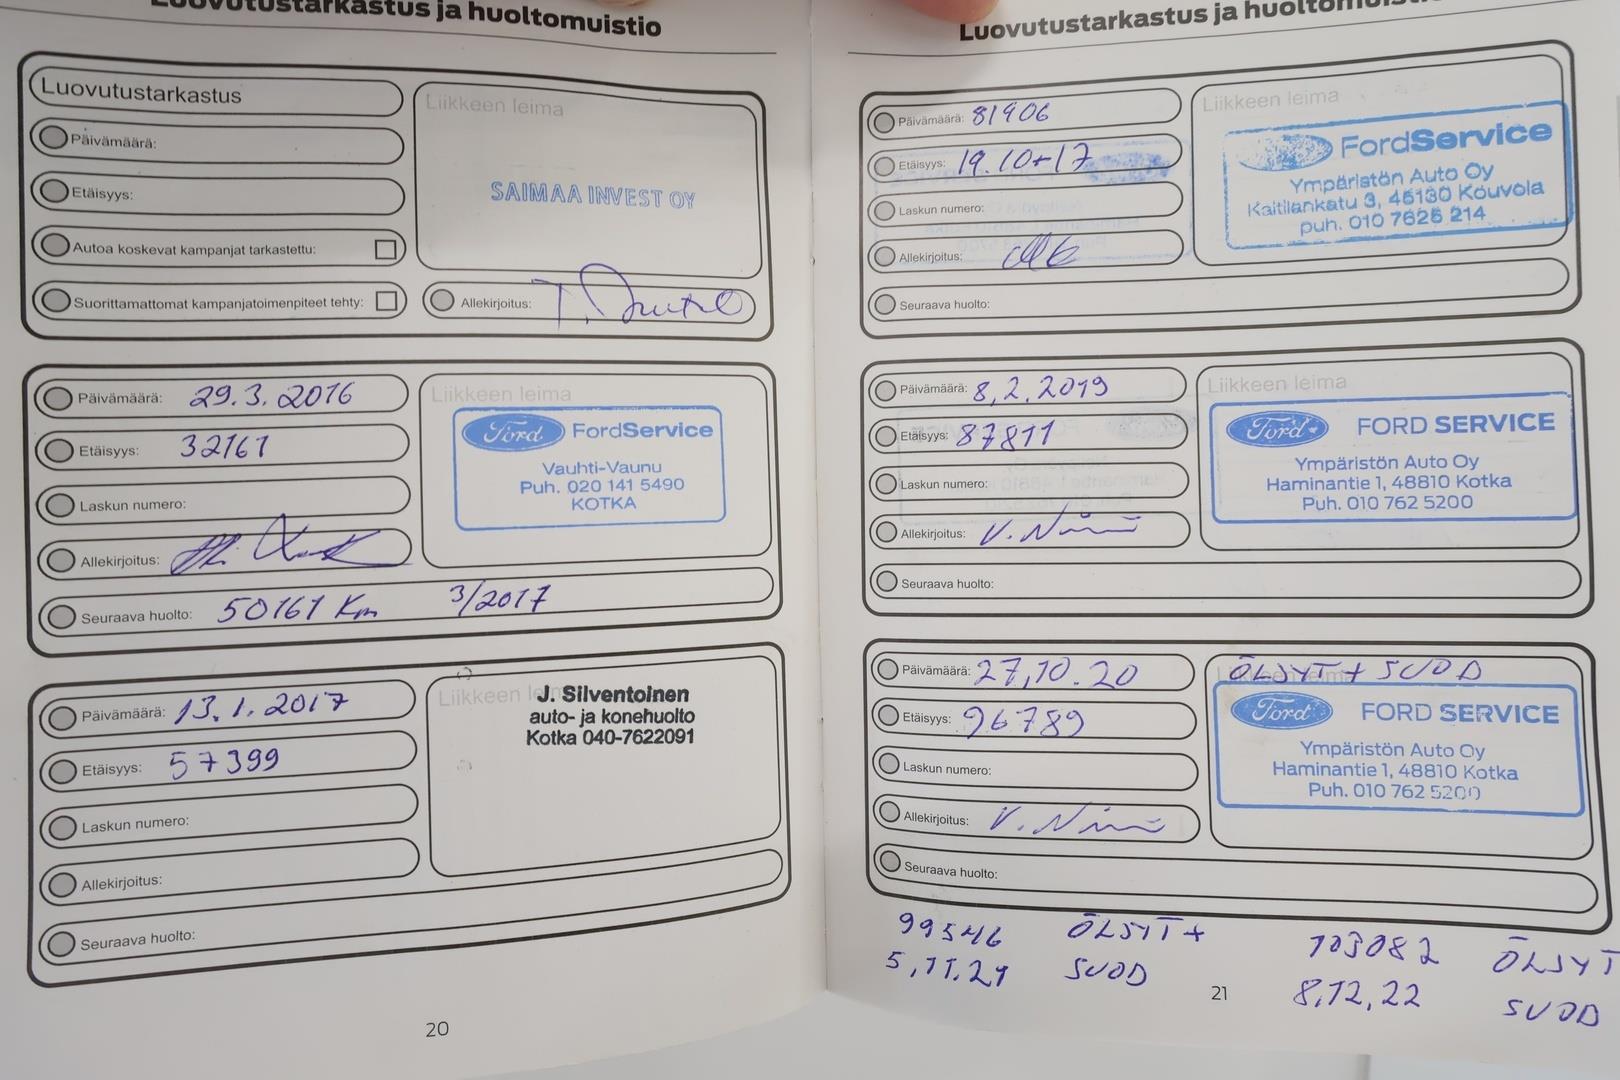 Luovutustarkastus ja huoltomuistio
Luovutustarkastus
Päivämäärä:
Etäisyys:
Autoa koskevat kampanjat tarkastettu:
Suorittamattomat kampanjatoimenpiteet tehty:
Liikkeen leima
SAIMAA INVEST OY
Allekirjoitus:
Päivämäärä: 29.3.2016
Etäisyys: 32161
Laskun numero:
Allekirjoitus:
Seuraava huolto: 50161 Km 3/2017
Liikkeen leima
Ford FordService
Vauhti-Vaunu
Puh. 020 141 5490
KOTKA
Päivämäärä: 13.1.2017
Etäisyys: 57399
Laskun numero:
Allekirjoitus:
Seuraava huolto:
Liikkeen
J. Silventoinen
auto- ja konehuolto
Kotka 040-7622091
20
Luovutustarkastus ja huoltomuistio
Päivämäärä: 81906
Etäisyys: 19.10-17
Laskun numero:
Allekirjoitus:
Seuraava huolto:
Liikkeen leima
FordService
Ympäristön Auto Oy
Kaitilankatu 3, 45130 Kouvola
puh. 010 7625 214
Päivämäärä: 8,2.2019
Etäisyys: 87811
Laskun numero:
Allekirjoitus: V.
Seuraava huolto:
Liikkeen leima
Ford FORD SERVICE
Ympäristön Auto Oy
Haminantie 1, 48810 Kotka
Puh. 010 762 5200
Päivämäärä: 27,10.20
Etäisyys: 96789
Laskun numero:
Allekirjoitus: V.
Seuraava huolto:
Liikkeen leima
ÖLJYT + SUOD
Ford FORD SERVICE
Ympäristön Auto Oy
Haminantie 1, 48810 Kotka
Puh. 010 762 5200
99546 ÖLJYT +
5,11.21 SUOD
103082 ÖLJYT
8,12,22 SUOD
21